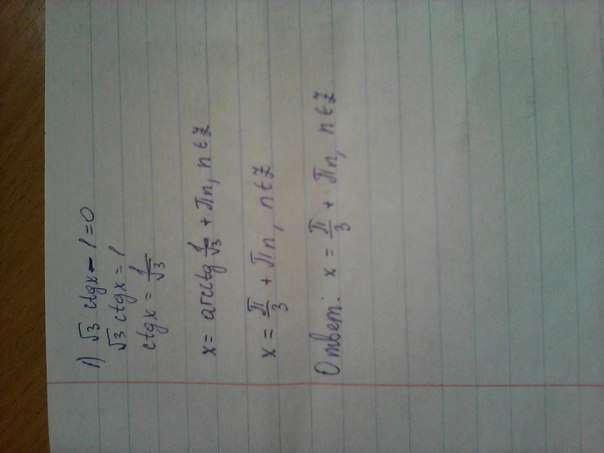 1) √3 ctgx - 1 = 0
√3 ctgx = 1
ctgx = 1/√3
x = arcctg 1/√3 + πn, n∈Z
x = π/3 + πn, n∈Z
Ответ: x = π/3 + πn, n∈Z